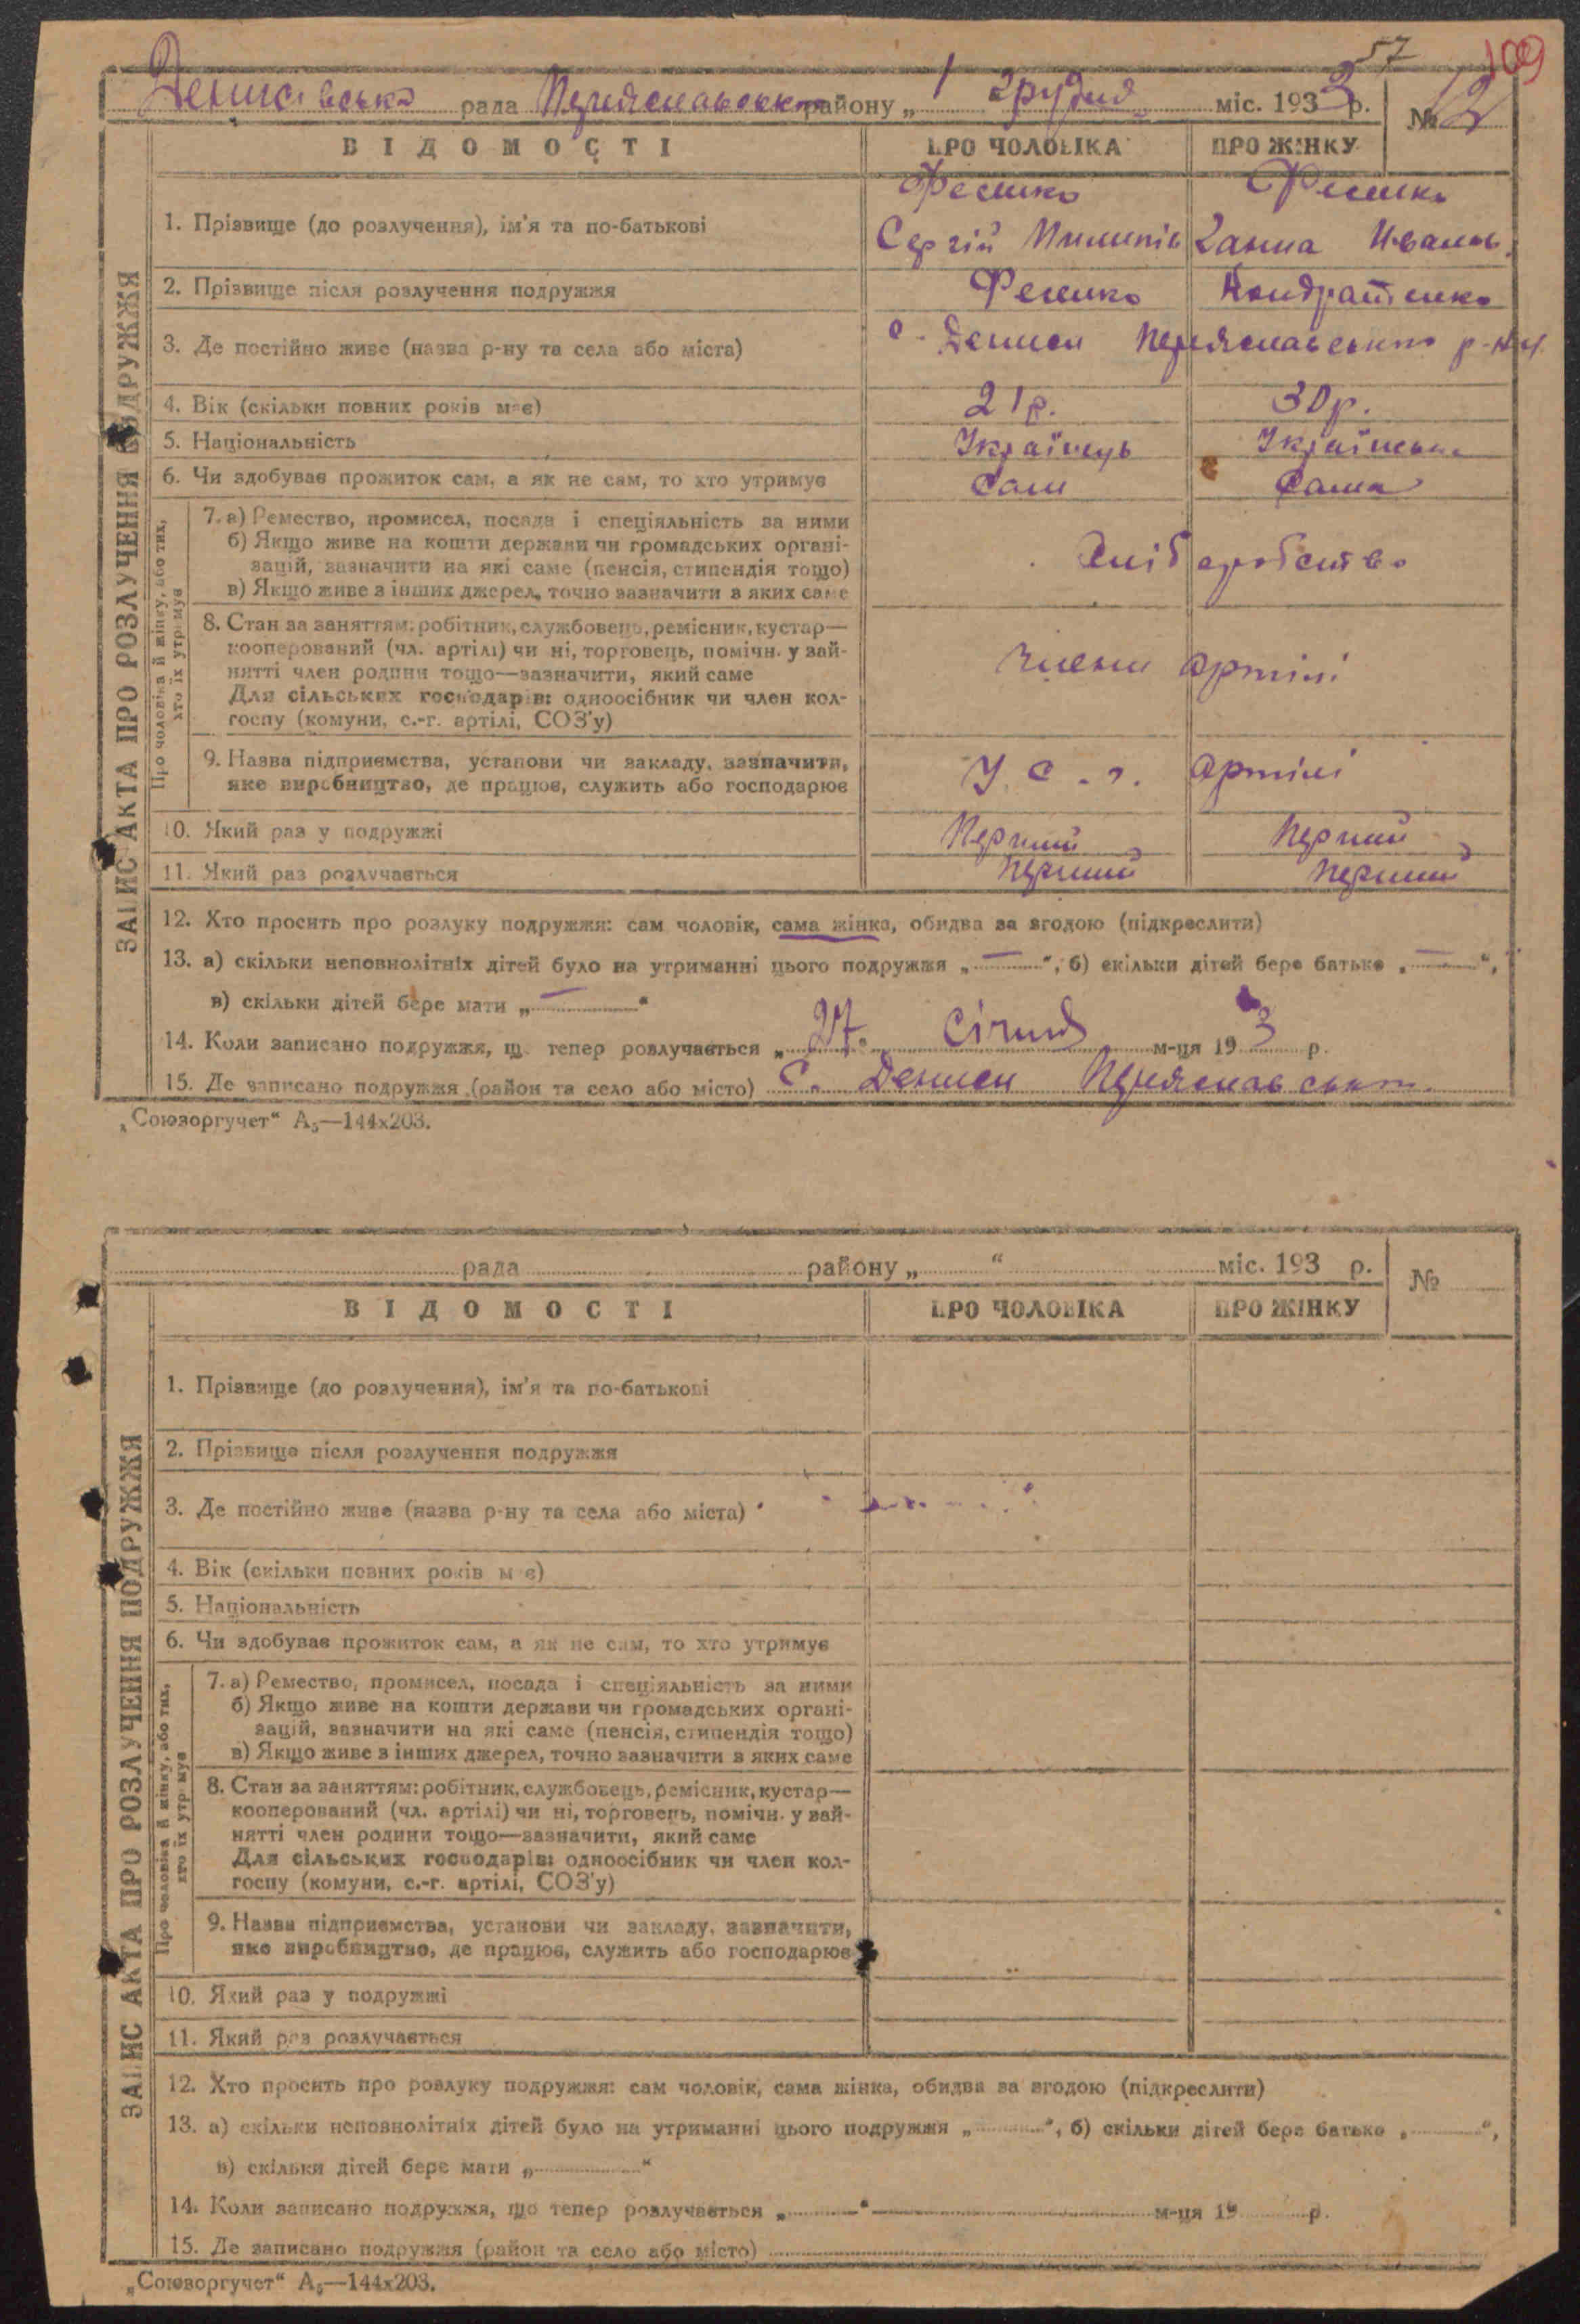 57
109
Денисівська рада Переяславського району „ 1 " грудня міс. 1933 р. № 12
ВІДОМОСТІ ПРО ЧОЛОВІКА ПРО ЖІНКУ
ЗАПИС АКТА ПРО РОЗЛУЧЕННЯ ПОДРУЖЖЯ
1. Прізвище (до розлучення), ім'я та по-батькові
Фесенко Фесенко
Сергій Пилипів Ганна Іванів.
2. Прізвище після розлучення подружжя Фесенко Кондратенко
3. Де постійно живе (назва р-ну та села або міста) с. Дениси Переяславського р-ну
4. Вік (скільки повних років має) 21р. 30р.
5. Національність Українець Українська
6. Чи здобуває прожиток сам, а як не сам, то хто утримує Сам Сама
Про чоловіка й жінку, або тих, хто їх утримує
7. а) Ремество, промисел, посада і спеціяльність за ними
б) Якщо живе на кошти держави чи громадських органі-
зацій, зазначити на які саме (пенсія, стипендія тощо)
в) Якщо живе з інших джерел, точно зазначити з яких саме
Хліборобство
8. Стан за заняттям: робітник, службовець, ремісник, кустар—
кооперований (чл. артілі) чи ні, торговець, помічн. у зай-
нятті член родини тощо—зазначити, який саме
Для сільських господарів: одноосібник чи член кол-
госпу (комуни, с.-г. артілі, СОЗ'у)
члени артілі
9. Назва підприємства, установи чи закладу, зазначити,
яке виробництво, де працює, служить або господарює
У с.-г. артілі
10. Який раз у подружжі Перший Перший
11. Який раз розлучається Перший Перший
12. Хто просить про розлуку подружжя: сам чоловік, сама жінка, обидва за згодою (підкреслити)
13. а) скільки неповнолітніх дітей було на утриманні цього подружжя „ — ", б) скільки дітей бере батько „ — ",
в) скільки дітей бере мати „ — "
14. Коли записано подружжя, що тепер розлучається „ 27 " Січня м-ця 19 3 р.
15. Де записано подружжя (район та село або місто) с. Дениси Переяславськ.
„Союзоргучет" А₅—144х203.
рада району „ " міс. 193 р. №
ВІДОМОСТІ ПРО ЧОЛОВІКА ПРО ЖІНКУ
ЗАПИС АКТА ПРО РОЗЛУЧЕННЯ ПОДРУЖЖЯ
1. Прізвище (до розлучення), ім'я та по-батькові
2. Прізвище після розлучення подружжя
3. Де постійно живе (назва р-ну та села або міста)
4. Вік (скільки повних років має)
5. Національність
6. Чи здобуває прожиток сам, а як не сам, то хто утримує
Про чоловіка й жінку, або тих, хто їх утримує
7. а) Ремество, промисел, посада і спеціяльність за ними
б) Якщо живе на кошти держави чи громадських органі-
зацій, зазначити на які саме (пенсія, стипендія тощо)
в) Якщо живе з інших джерел, точно зазначити з яких саме
8. Стан за заняттям: робітник, службовець, ремісник, кустар—
кооперований (чл. артілі) чи ні, торговець, помічн. у зай-
нятті член родини тощо—зазначити, який саме
Для сільських господарів: одноосібник чи член кол-
госпу (комуни, с.-г. артілі, СОЗ'у)
9. Назва підприємства, установи чи закладу, зазначити,
яке виробництво, де працює, служить або господарює
10. Який раз у подружжі
11. Який раз розлучається
12. Хто просить про розлуку подружжя: сам чоловік, сама жінка, обидва за згодою (підкреслити)
13. а) скільки неповнолітніх дітей було на утриманні цього подружжя „ ", б) скільки дітей бере батько „ ",
в) скільки дітей бере мати „ "
14. Коли записано подружжя, що тепер розлучається „ " м-ця 19 р.
15. Де записано подружжя (район та село або місто)
„Союзоргучет" А₅—144х203.